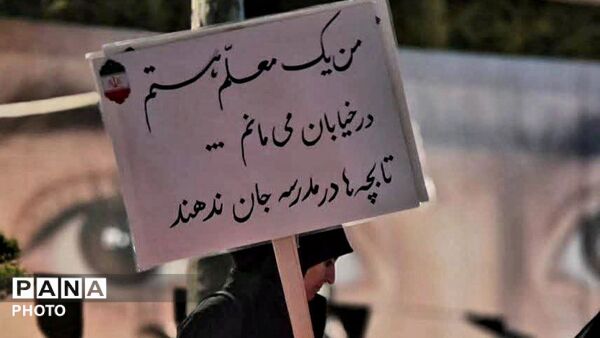 من یک معلّم هستم
در خیابان می مانم ...
تا بچه ها در مدرسه جان ندهند
PANA
PHOTO